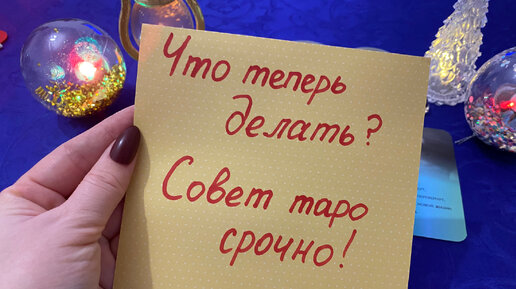 Что теперь
делать?
Совет таро
срочно!